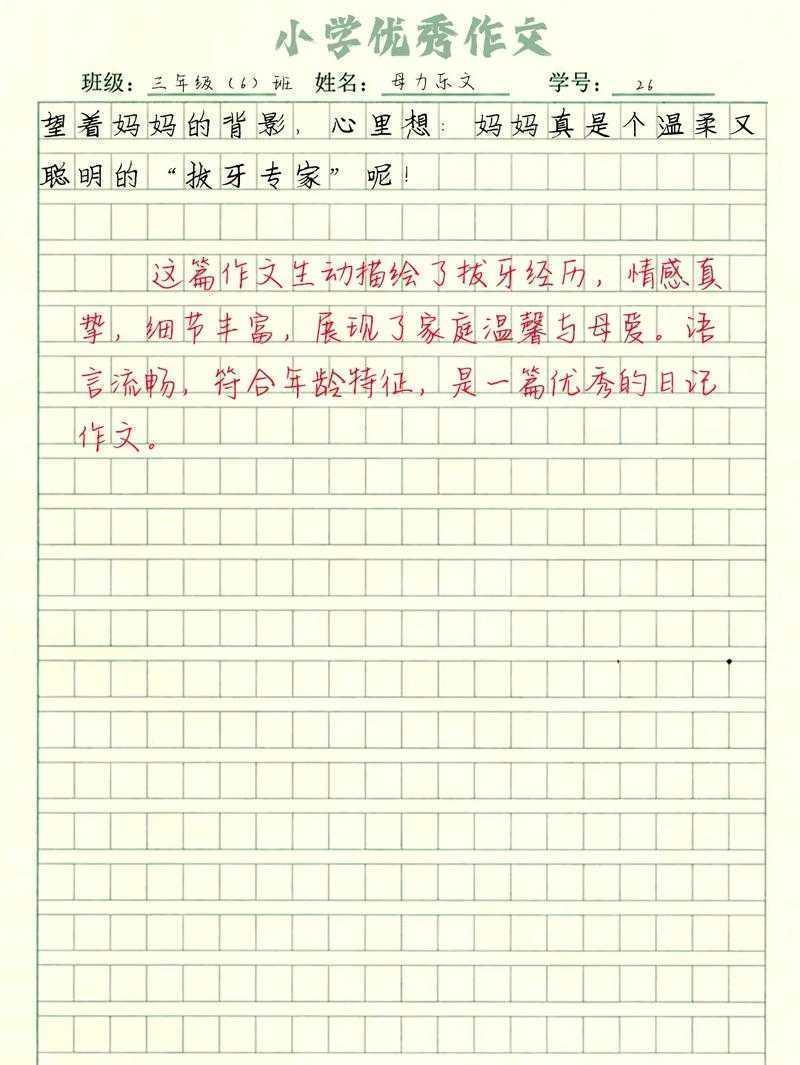 小学优秀作文
班级：三年级（6）班 姓名：母力乐文 学号：26
望着妈妈的背影，心里想：妈妈真是个温柔又
聪明的“拔牙专家”呢！
这篇作文生动描绘了拔牙经历，情感真
挚，细节丰富，展现了家庭温馨与母爱。语
言流畅，符合年龄特征，是一篇优秀的日记
作文。